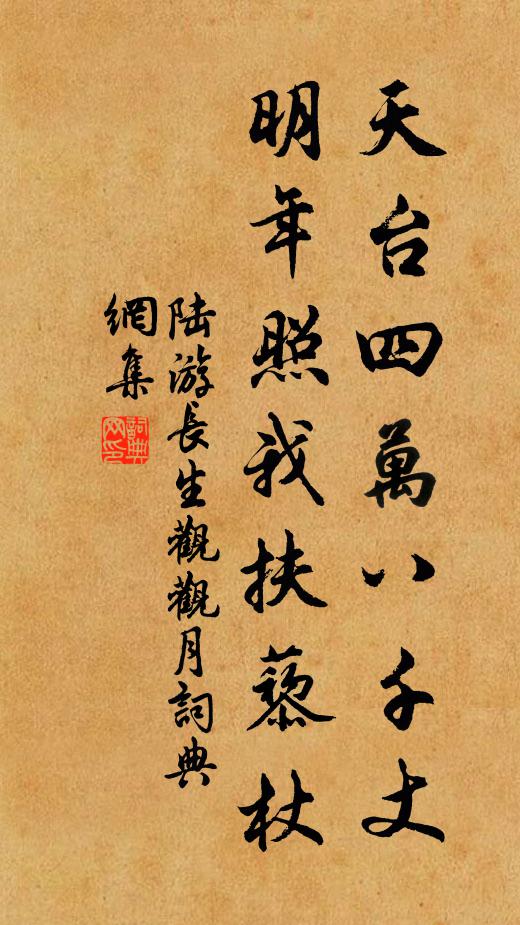 天台四萬八千丈
明年照我扶藜杖
陸游長生觀觀月詞典
網集
詞典
网印